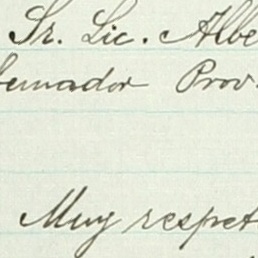 Sr. Lic. Albe
bernador Prov.
Muy respet